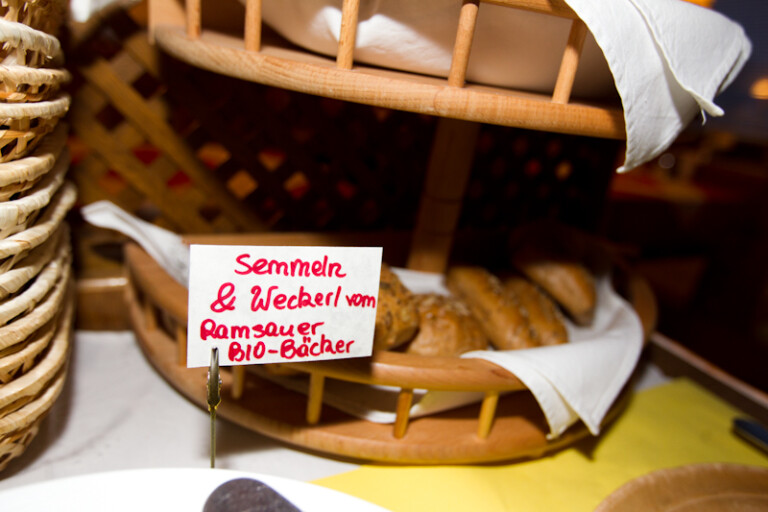 Semmeln
& Weckerl vom
Ramsauer
BIO-Bäcker